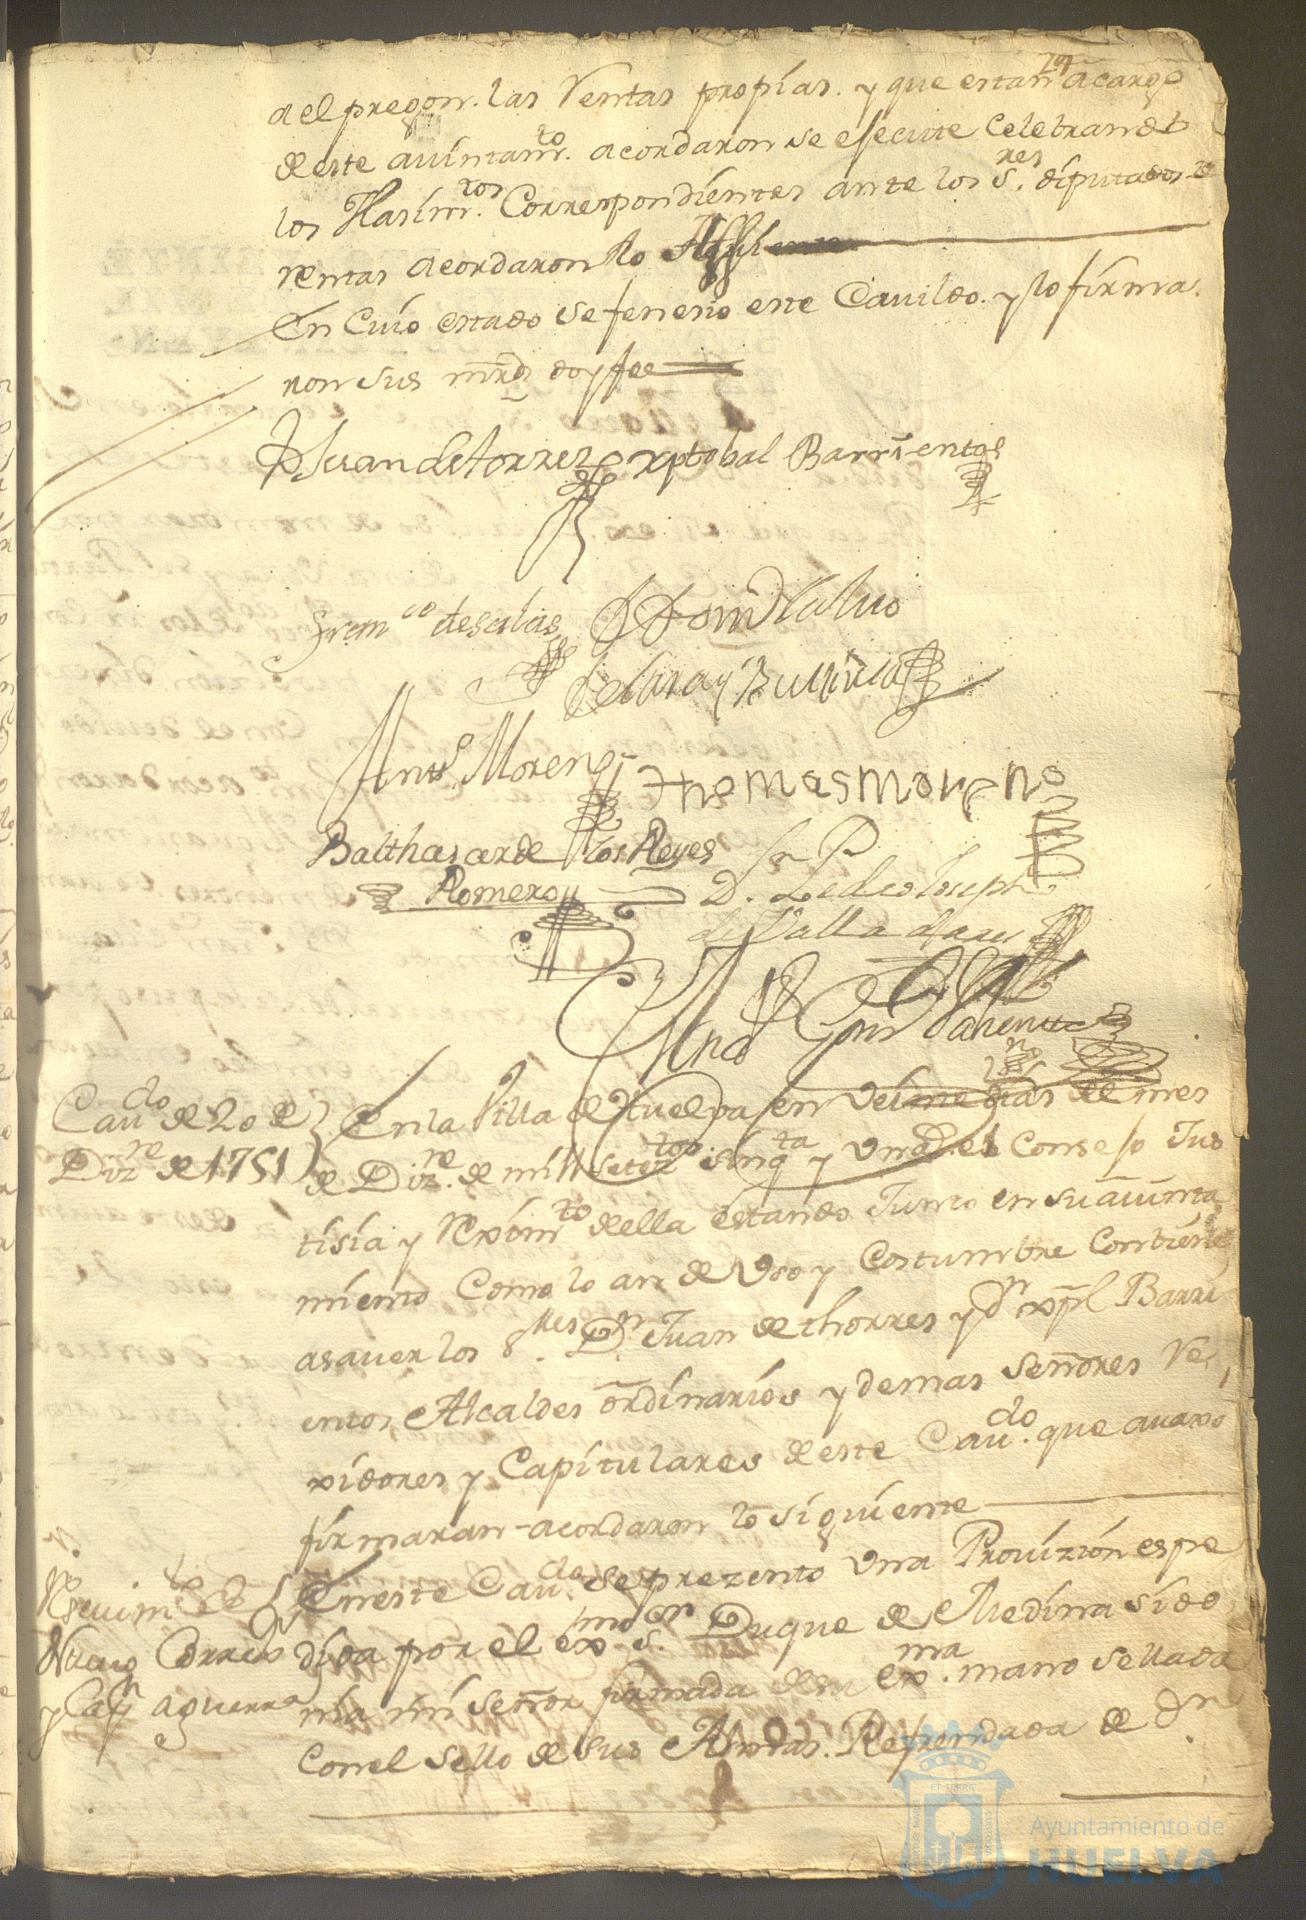 a el pregon. las Rentas propias. y que estan a cargo
de este auintam.to acordaron se efecute Celebrando
los Hasim.tos Correspondientes ante los S.res diputados de
rentas acordaronlo
En Cuio estado se fenesio este Cauildo. y lo firma
ron sus mrds doy fee
Juan de torres xptobal Barrientos
Fran.co de salas
Ant.o Moreno thomas moreno
Balthasar de los Reyes
Romero D. Pedro Joseph
Cau.do de 20 de
Diz.re de 1751
En la Villa de Huelva en Veinte dias de mes
de Diz.re de mill setez.tos sinq.ta y Uno. el Conse Jo Jus
tisia y Reximt.o de ella estando Junto en su auinta
miento Como lo an de Uso y Costumbre Combiene
asauer los S.res D.n Juan de thorres y D.n xpl Barri
entos Alcaldes ordinarios y demas señores Re
xidores y Capitulares de este Cau.do que auaxo
firmaran acordaron lo siguiente
Reciuim.to de
Nuebo Correx.or
y Cap.n a guerra
En este Cau.do se prezento Una Prouizion espe
dida por el ex.mo S.or Duque de Medina sido
nia mi señor firmada de su ex.ma mano sellada
Con el sello de sus Armas. Refrendada de D.n
Ayuntamiento de
HUELVA